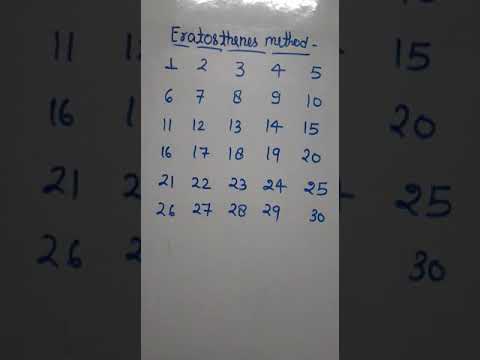 Eratosthenes method -
1 2 3 4 5
6 7 8 9 10
11 12 13 14 15
16 17 18 19 20
21 22 23 24 25
26 27 28 29 30